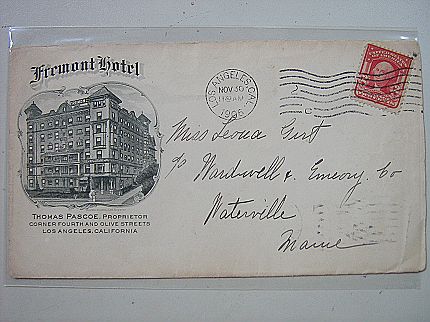 Fremont Hotel
THOMAS PASCOE, PROPRIETOR
CORNER FOURTH AND OLIVE STREETS
LOS ANGELES, CALIFORNIA
LOS ANGELES, CAL.
NOV 30
1905
2
C
Miss Leora
c/o Wardwell & Emery Co
Waterville
Maine